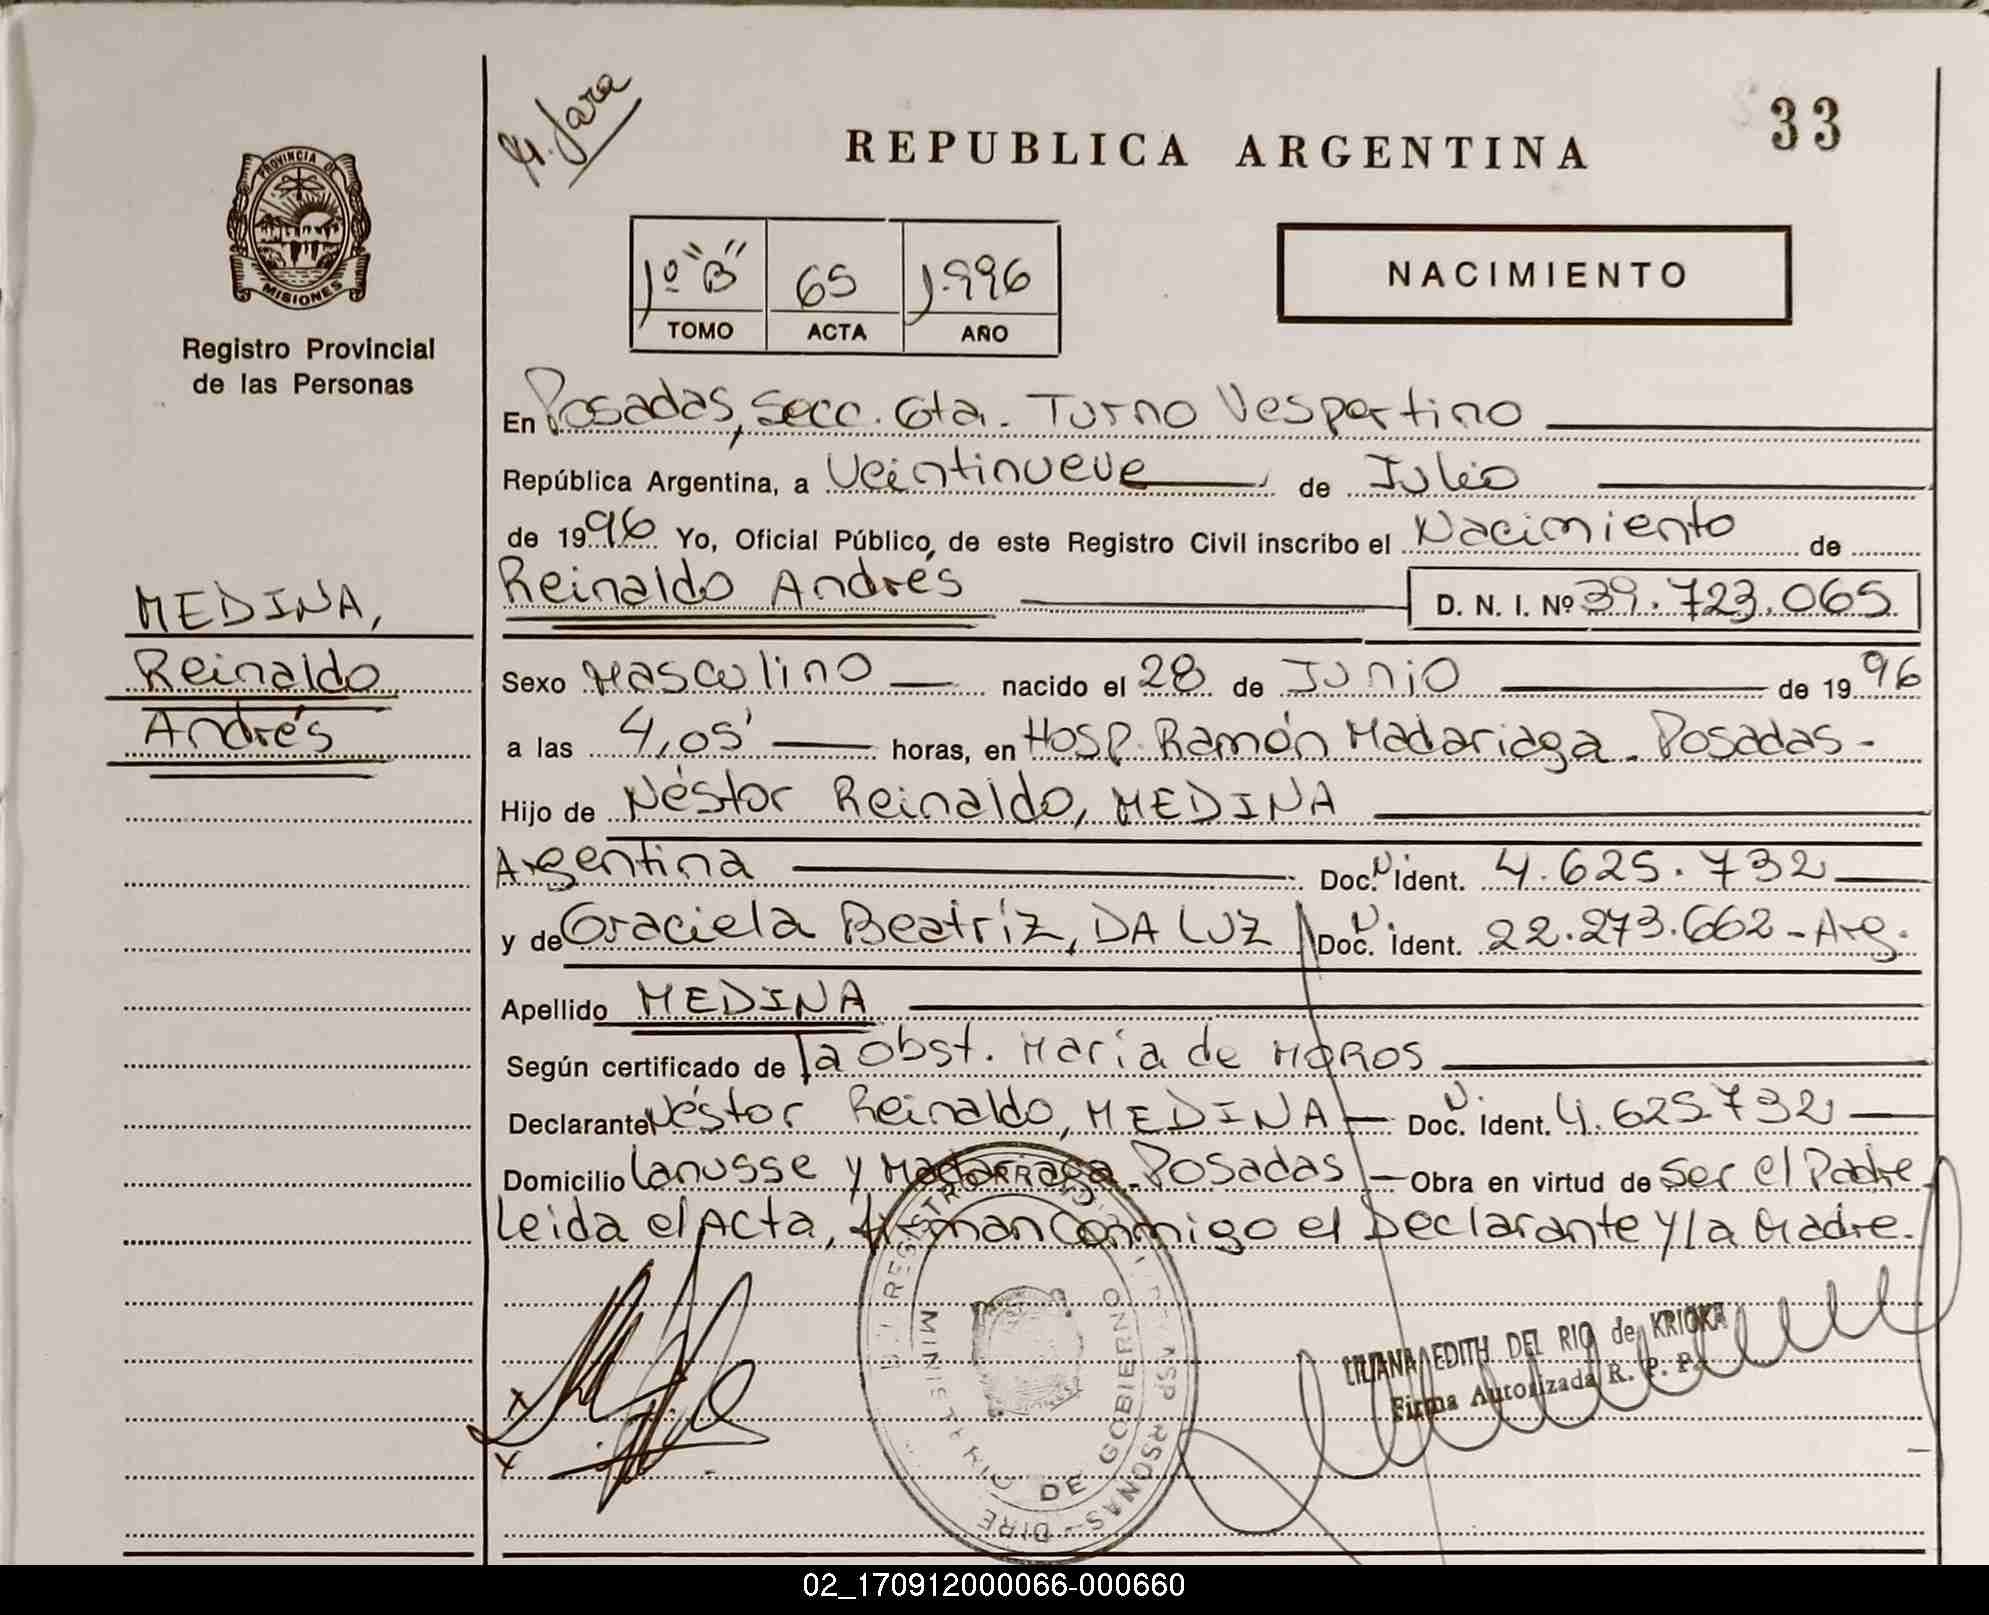 33
REPUBLICA ARGENTINA
PROVINCIA DE
MISIONES
Registro Provincial
de las Personas
1º "B" 65 1.996
TOMO ACTA AÑO
NACIMIENTO
En Posadas, Secc. 6ta. Turno Vespertino
República Argentina, a Veintinueve de Julio
de 1996 Yo, Oficial Público, de este Registro Civil inscribo el Nacimiento de
Reinaldo Andrés D. N. I. Nº 39.723.065
MEDINA,
Reinaldo
Andrés
Sexo Masculino nacido el 28 de Junio de 1996
a las 4,05' horas, en Hosp. Ramón Madariaga - Posadas -
Hijo de Néstor Reinaldo, MEDINA
Argentina Doc. N ident. 4.625.732
y de Graciela Beatríz, DA LUZ Doc. N ident. 22.273.662 - Arg.
Apellido MEDINA
Según certificado de la Obst. María de MOROS
Declarante Néstor Reinaldo, MEDINA Doc. N ident. 4.625732
Domicilio Lanusse y Madarriaga - Posadas - Obra en virtud de Ser el Padre
Leida el Acta, firman Conmigo el Declarante y la Madre.
MINISTERIO DE GOBIERNO
LILIANA EDITH DEL RIO de KRIOKA
Firma Autorizada R. P. P.
02_170912000066-000660